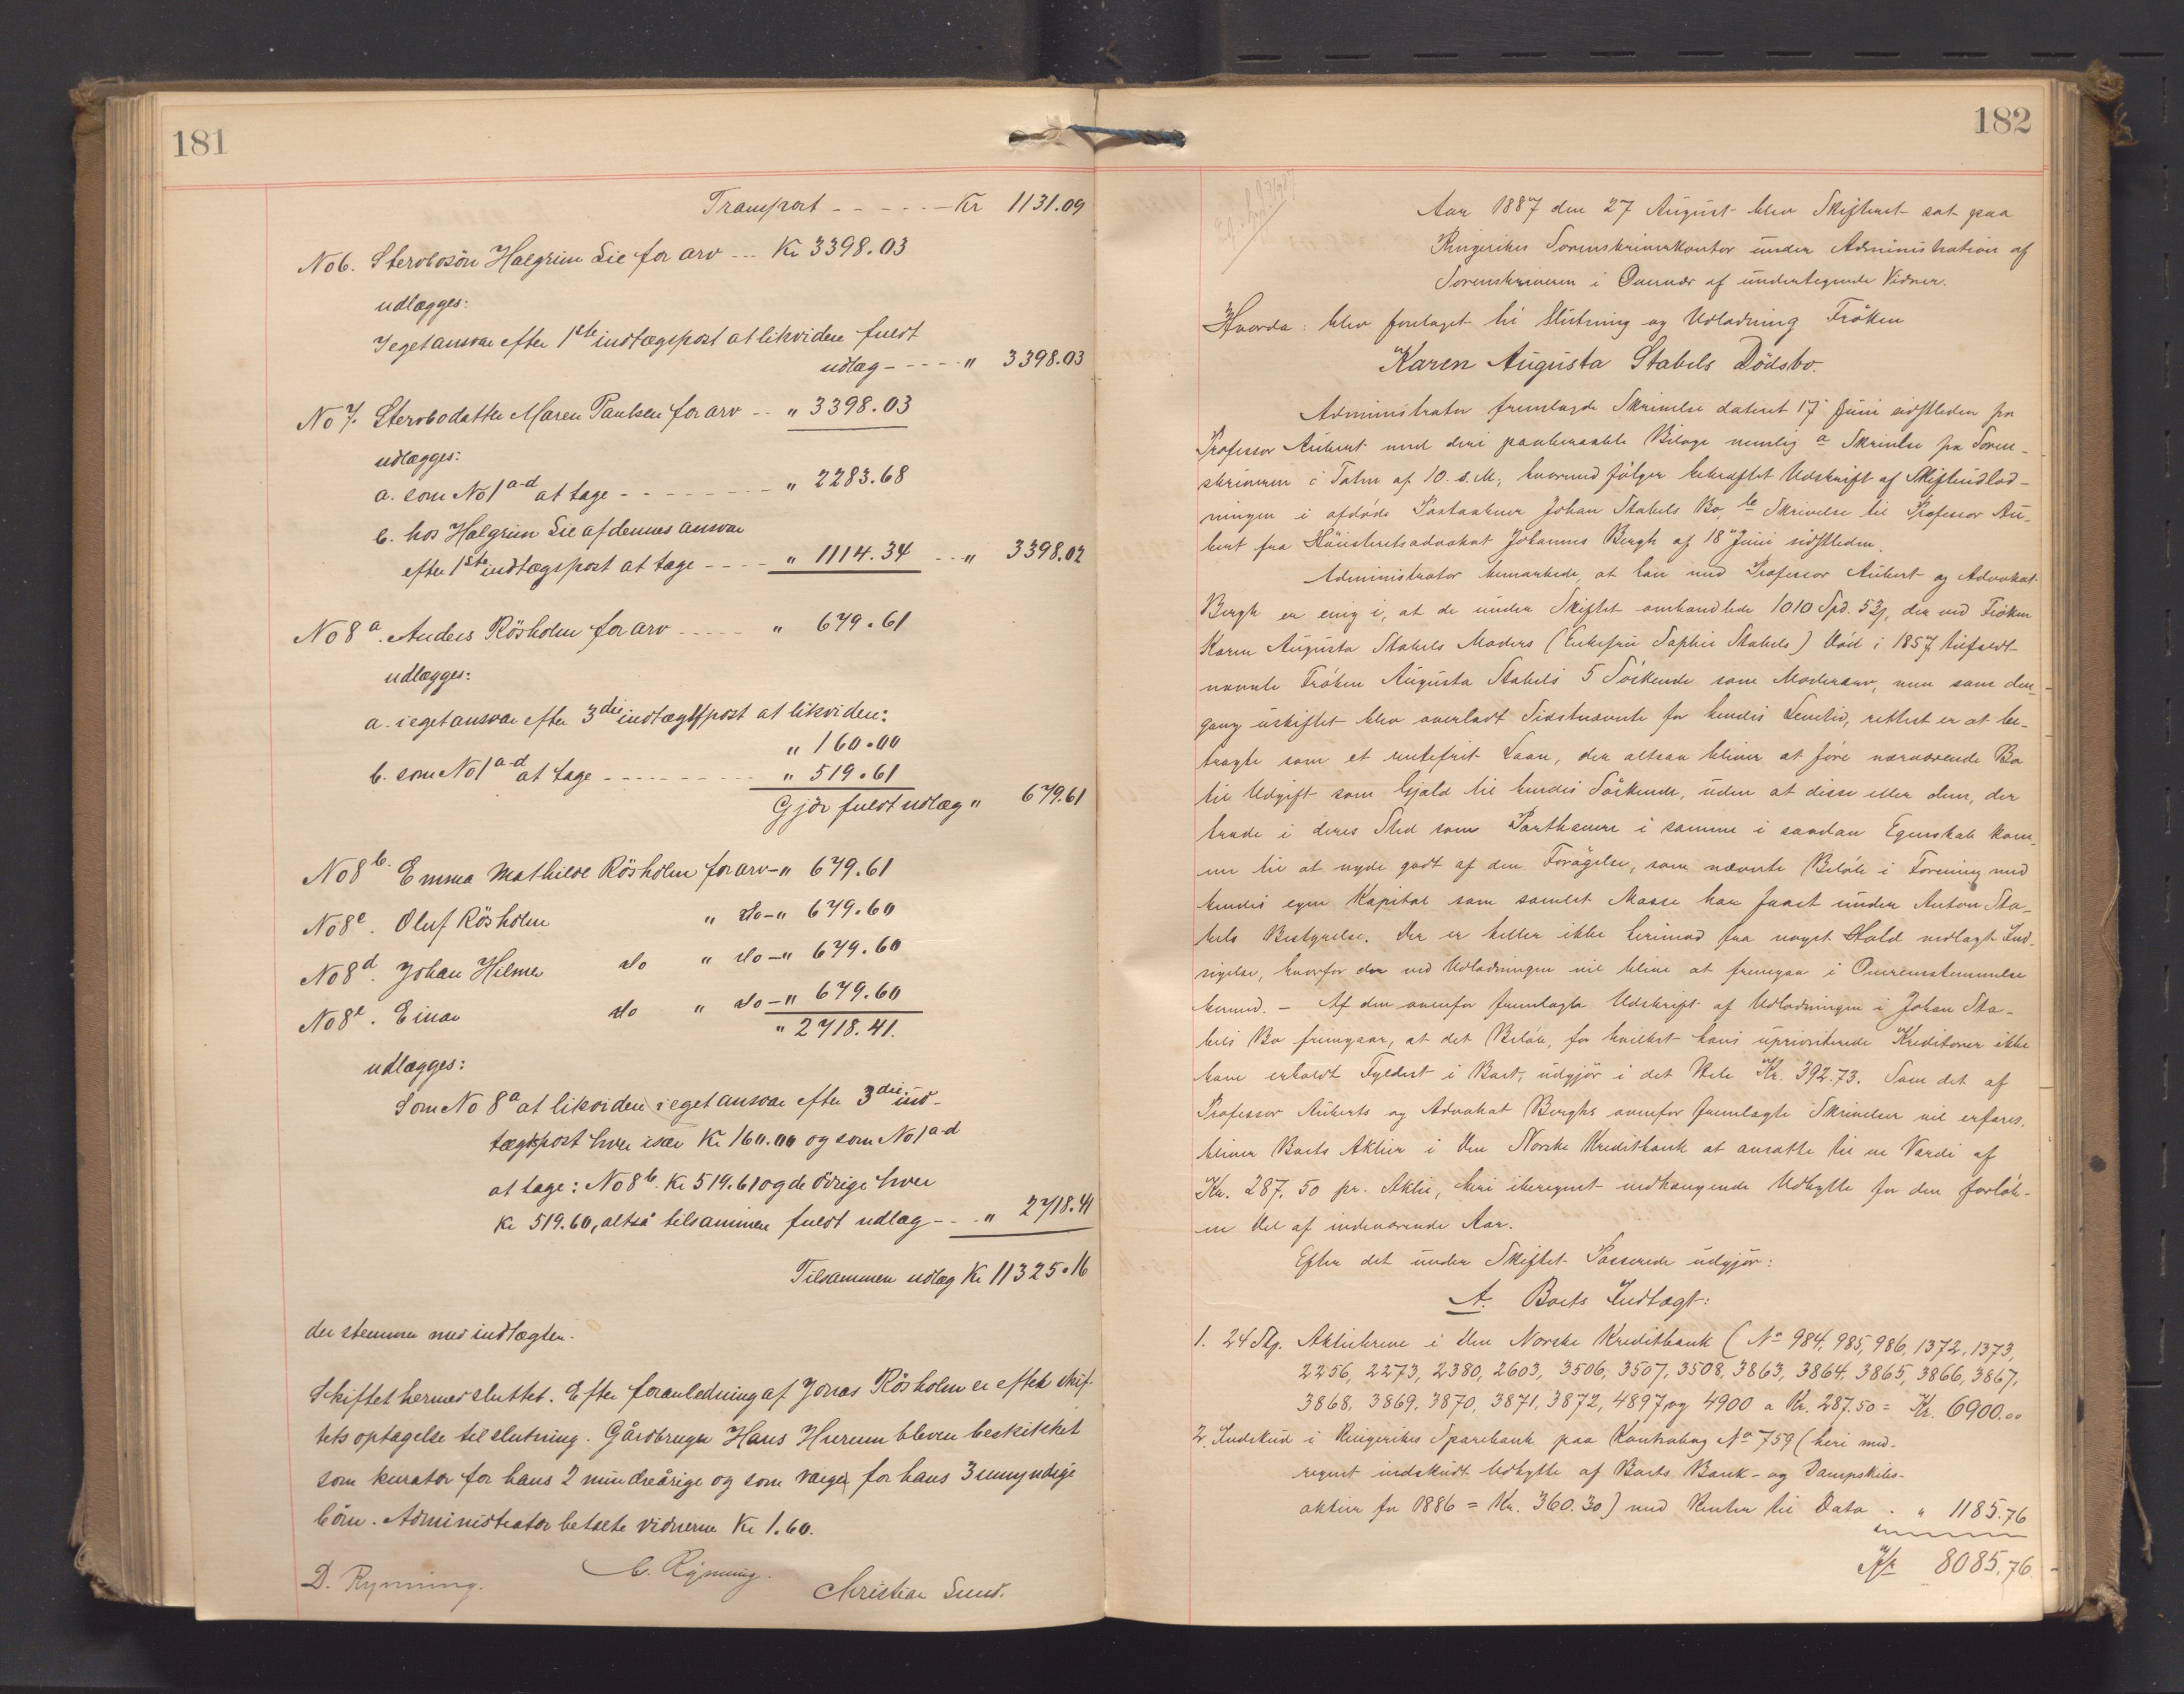 181
Transport - - - - - Kr 1131.09
No 6. Sterbosön Halgrim Lie for arv --- Kr 3398.03
udlægges:
I eget ansvar efter 1ste indtægspost at likvidere fuldt
udlæg - - - - " 3398.03
No 7. Sterbodatter Maren Paulsen for arv -- " 3398.03
udlægges:
a. som No 1 a-d at tage - - - - - - - " 2283.68
b. hos Halgrim Lie af dennes ansvar
efter 1ste indtægspost at tage - - - - " 1114.34 --- " 3398.02
No 8 a. Anders Rösholm for arv ----- " 679.61
udlægges:
a. i eget ansvar efter 3die indtægtspost at likvidere:
" 160.00
b. som No 1 a-d at tage - - - - - - - - - " 519.61
Gjör fuldt udlæg " 679.61
No 8 b. Emma Mathilde Rösholm for arv - " 679.61
No 8 c. Oluf Rösholm " do - " 679.60
No 8 d. Johan Hilmer do " do - " 679.60
No 8 e. Einar do " do - " 679.60
" 2718.41.
udlægges:
Som No 8 a at likvidere i eget ansvar efter 3die ind-
tægtspost hver især Kr 160.00 og som No 1 a-d
at tage: No 8 b. Kr 519.61 og de övrige hver
Kr 519.60, altså tilsammen fuldt udlæg - - - " 2718.41
Tilsammen udlæg Kr 11325.16
der stemmer med indtægten.
Skiftet hermed sluttet. Efter foranledning af Jonas Rösholm er efter skif-
tets optagelse til slutning. Gårdbruger Hans Hurum bleven beskikket
som kurator for hans 2 mindreårige og som værge for hans 3 umyndige
börn. Administrator betalte vidnerne Kr 1.60.
D. Rynning. C. Rynning. Christian Sund.
182
Aar 1887 den 27 August blev Skifteret sat paa
Ringerikes Sorenskriverkontor under Administration af
Sorenskriveren i Overvær af undertegnede Vidner.
Hvorda: blev foretaget til Slutning og Udlodning Fröken
Karen Augusta Stabels Dödsbo.
Administrator fremlagde Skrivelse dateret 17 Juni sidstleden fra
Professor Aubert med deri paaberaabte Bilage nemlig a Skrivelse fra Soren-
skriveren i Toten af 10. s. M., hvormed fölger bekræftet Udskrift af Skifteudlod-
ningen i afdöde Stabels Bo, b Skrivelse til Professor Au-
bert fra Höiesteretsadvokat Johannes Bergh af 18 Juni sidstleden.
Administrator bemærkede, at han med Professor Aubert og Advokat
Bergh er enig i, at de under Skiftet omhandlede 1010 Spd. 5 ß, der ved Fröken
Karen Augusta Stabels Moders (Enkefru Sophie Stabels) Död i 1857 tilfaldt
nævnte Fröken Augusta Stabels 5 Söskende som Modersarv, men som den-
gang uskiftet blev overladt Sidstnævnte for hendes Levetid, rettest er at be-
tragte som et rentefrit Laan, der altsaa bliver at före nærværende Bo
til Udgift som Gjæld til hendes Söskende, uden at disse eller dem, der
træde i deres Sted som Parthavere i samme i saadan Egenskab kom-
me til at nyde godt af den Forögelse, som nævnte Belöb i Forening med
hendes egen Kapital som samlet Masse har faaet under Anton Sta-
bels Bestyrelse. Der er heller ikke herimod fra noget Hold nedlagt Ind-
sigelse, hvorfor der ved Udlodningen vil blive at fremgaa i Overensstemmelse
hermed. - Af den ovenfor fremlagte Udskrift af Udlodningen i Johan Sta-
bels Bo fremgaar, at det Belöb, for hvilket hans uprioriterede Kreditorer ikke
have erholdt Fyldest i Boet, udgjör i det Hele Kr. 392.73. Som det af
Professor Auberts og Advokat Berghs ovenfor fremlagte Skrivelser vil erfares,
bliver Boets Aktier i Den Norske Kreditbank at ansætte til en Værdi af
Kr. 287.50 pr. Aktie, heri iberegnet vedhængende Udbytte for den forlöb-
ne Del af indeværende Aar.
Efter det under Skiftet Passerede udgjör:
A. Boets Indtægt:
1. 24 Stk. Aktiebreve i Den Norske Kreditbank (No 984, 985, 986, 1372, 1373,
2256, 2273, 2380, 2603, 3506, 3507, 3508, 3863, 3864, 3865, 3866, 3867,
3868, 3869, 3870, 3871, 3872, 4897 og 4900 a Kr. 287.50 = Kr. 6900.00
2. Indskud i Ringerikes Sparebank paa Kontrabog No 759 (heri med-
regnet indskudt Udbytte af Boets Bank- og Dampskibs-
aktier for 1886 = Kr. 360.30) med Renter til Dato . " 1185.76
Kr. 8085.76